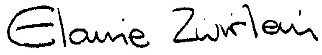 Elaine Zwirlein